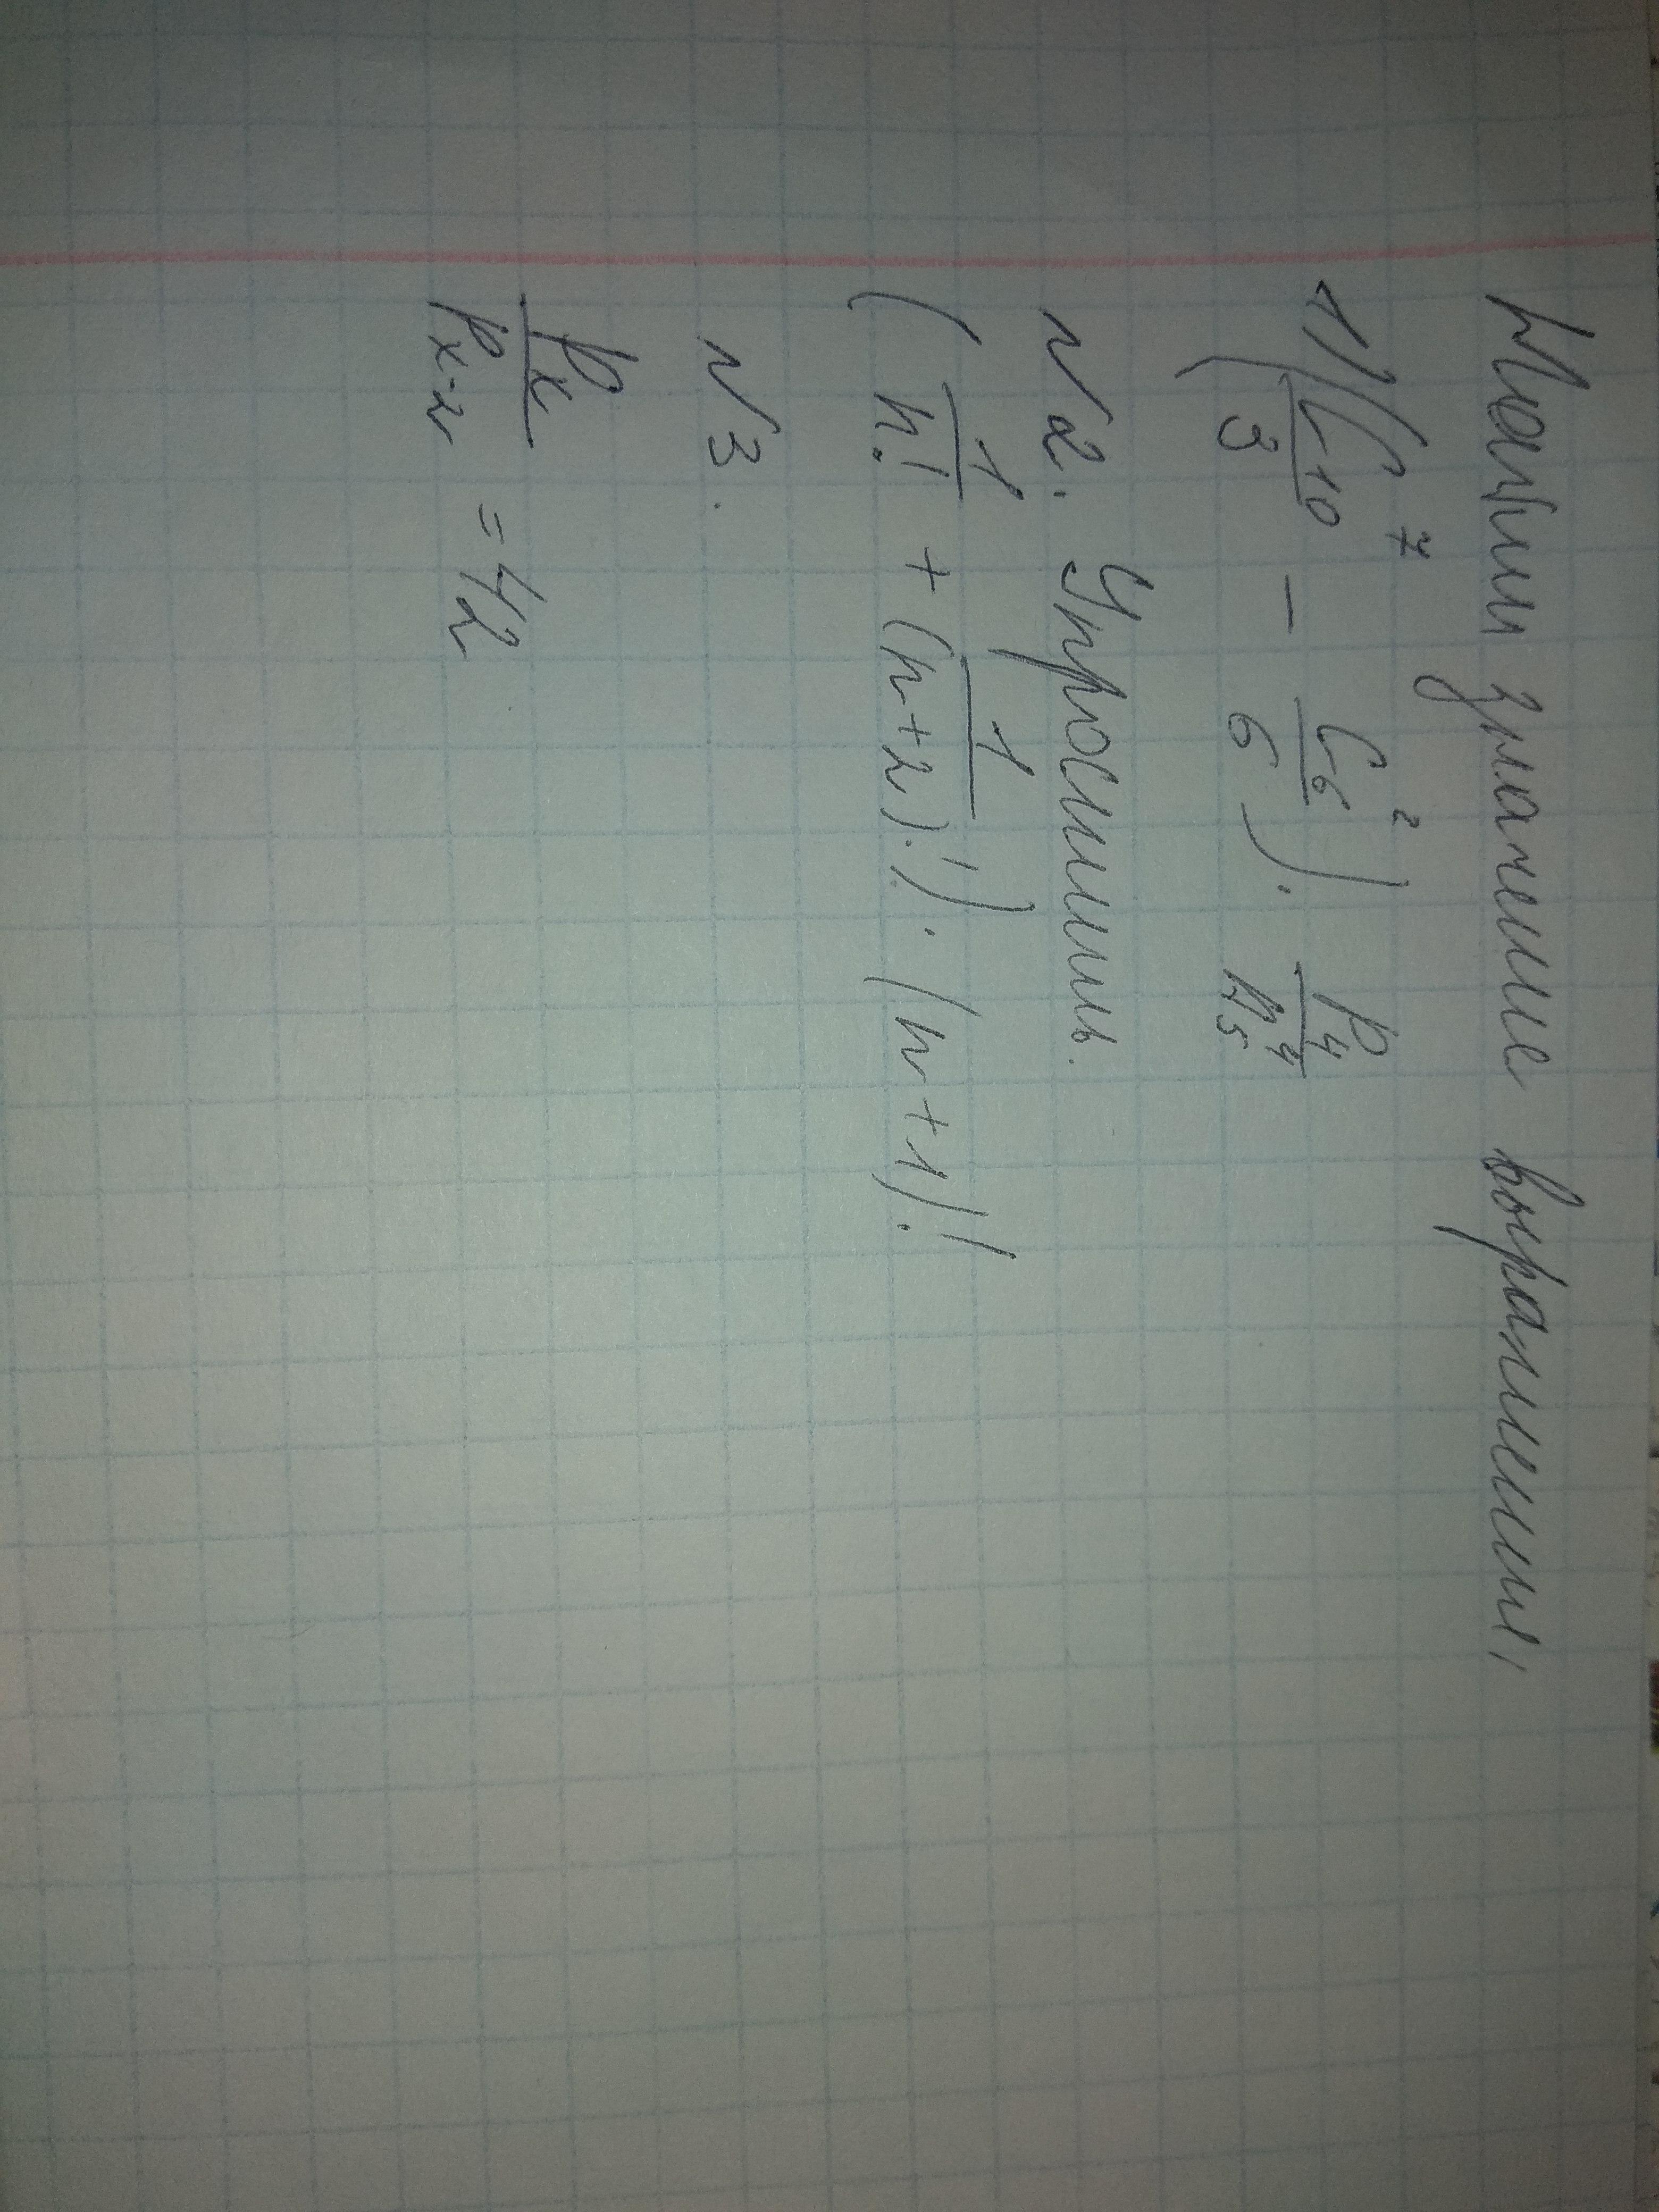 Найти значение выражения,
1) (C₁₀⁷/3 − C₆²/6) · P₄/A₅⁴
N 2. Упростить.
(1/n! + 1/(n+2)!) · (n+1)!
N 3.
Pₓ/Pₓ₋₂ = 42